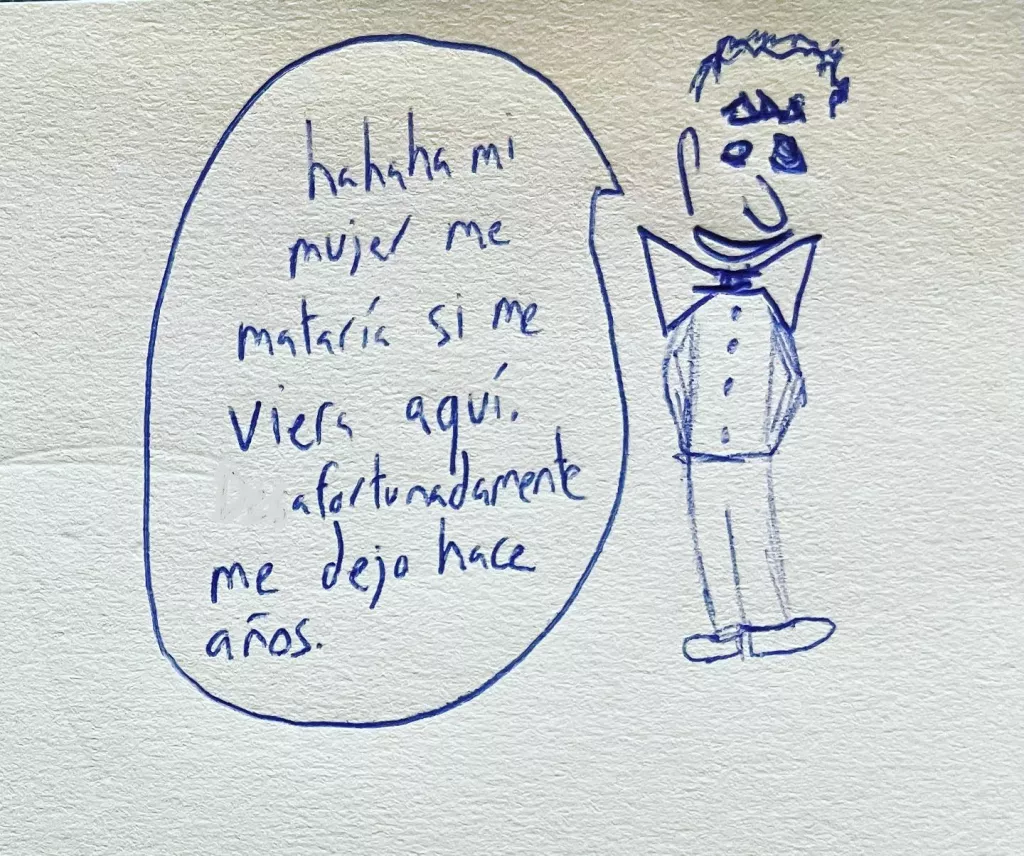 hahaha mi
mujer me
mataría si me
viera aquí.
afortunadamente
me dejo hace
años.